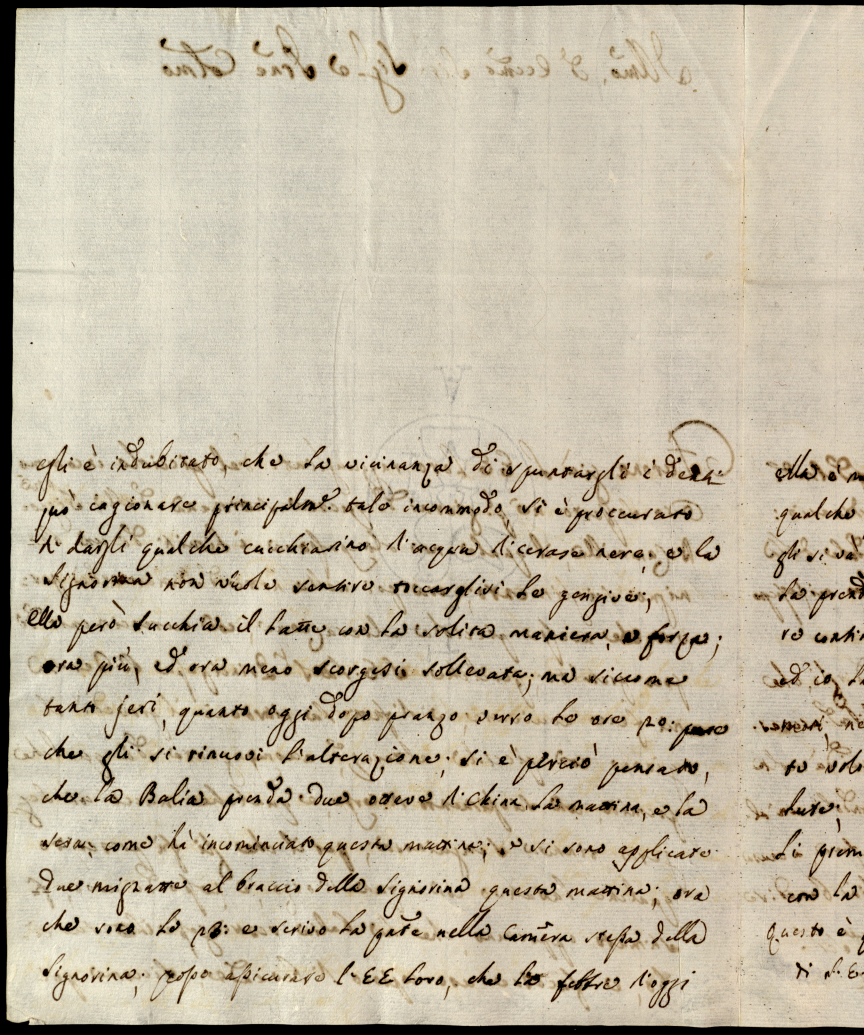 egli è indubitato, che la vicinanza di spuntargli i denti
può cagionare principalm.e tale incommodo, si è proccurato
di dargli qualche cucchiarino d'acqua di cerase nere; e la
Signorina non vuole sentire toccarglivi le gengive;
ella però succhia il latte con la solita maniera, e forza;
ora più, ed ora meno scorgesi sollevata; ma siccome
tanto jeri, quanto oggi dopo pranzo verso le ore 20: pare
che gli si rinuovi l'alterazione; si è perciò pensato,
che la Balia prenda due ottave di China la mattina, e la
sera; come hà incominciato questa mattina; e si sono applicate
due mignatte al braccio della Signorina questa mattina; ora
che sono le 23: e scrivo la p͞nte nella Camera stessa della
Signorina; posso assicurare l'EE loro, che la febbre d'oggi
ella è
qualche
gli si và
la prend
re conti
ed io
to
lute;
li prem
con la
questo è
di